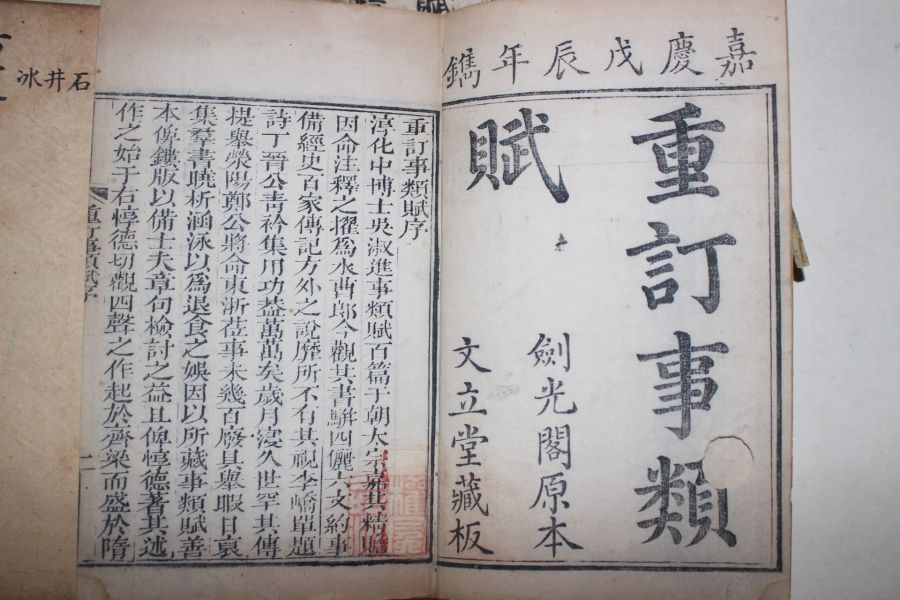 嘉慶戊辰年鐫
重訂事類
賦
劍光閣原本
文立堂藏板
重訂事類賦序
淳化中博士吳淑進事類賦百篇于朝太宗嘉其精贍
因命注釋之擢為水曹郎今觀其書駢四儷六文約事
備經史百家傳記方外之說靡所不有其視李嶠單題
詩丁晉公青衿集用功益萬萬矣歲月寖久世罕其傳
提舉滎陽鄭公將命東浙莅事未幾百廢具舉暇日裒
集羣書曉析涵泳以為退食之娛因以所藏事類賦善
本俾鏤版以備士夫章句檢討之益且俾惇德著其述
作之始于右惇德切觀四聲之作起於齊梁而盛於隋
重訂事類賦序
石井冰